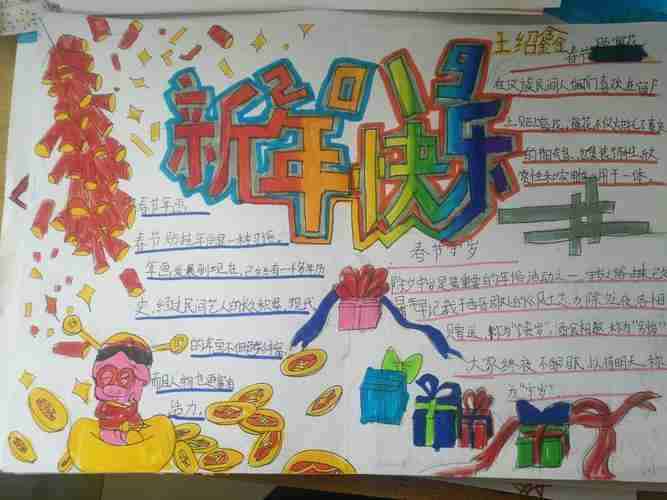 新年快乐
2019
王绍鑫
春节贴窗花
在汉族民间人们还喜欢在窗户
上贴上窗花。窗花不仅烘托了喜庆
的节日气氛,也集装饰性、欣
赏性和实用性 用于一体。
春节年画
春节贴挂年画是一种习俗。
年画发展到现在,已经有一千多年历
史,经过民间艺人的
的
而且人物也更富有
活力。
春节守岁
除夕守岁是最重要的年俗活动之一,守岁之俗由来已久。
最早记载于西晋
馈送,称为"馈岁",酒食相邀,称为"别岁"
大家终夜不眠,以待天明,称
为"守岁"